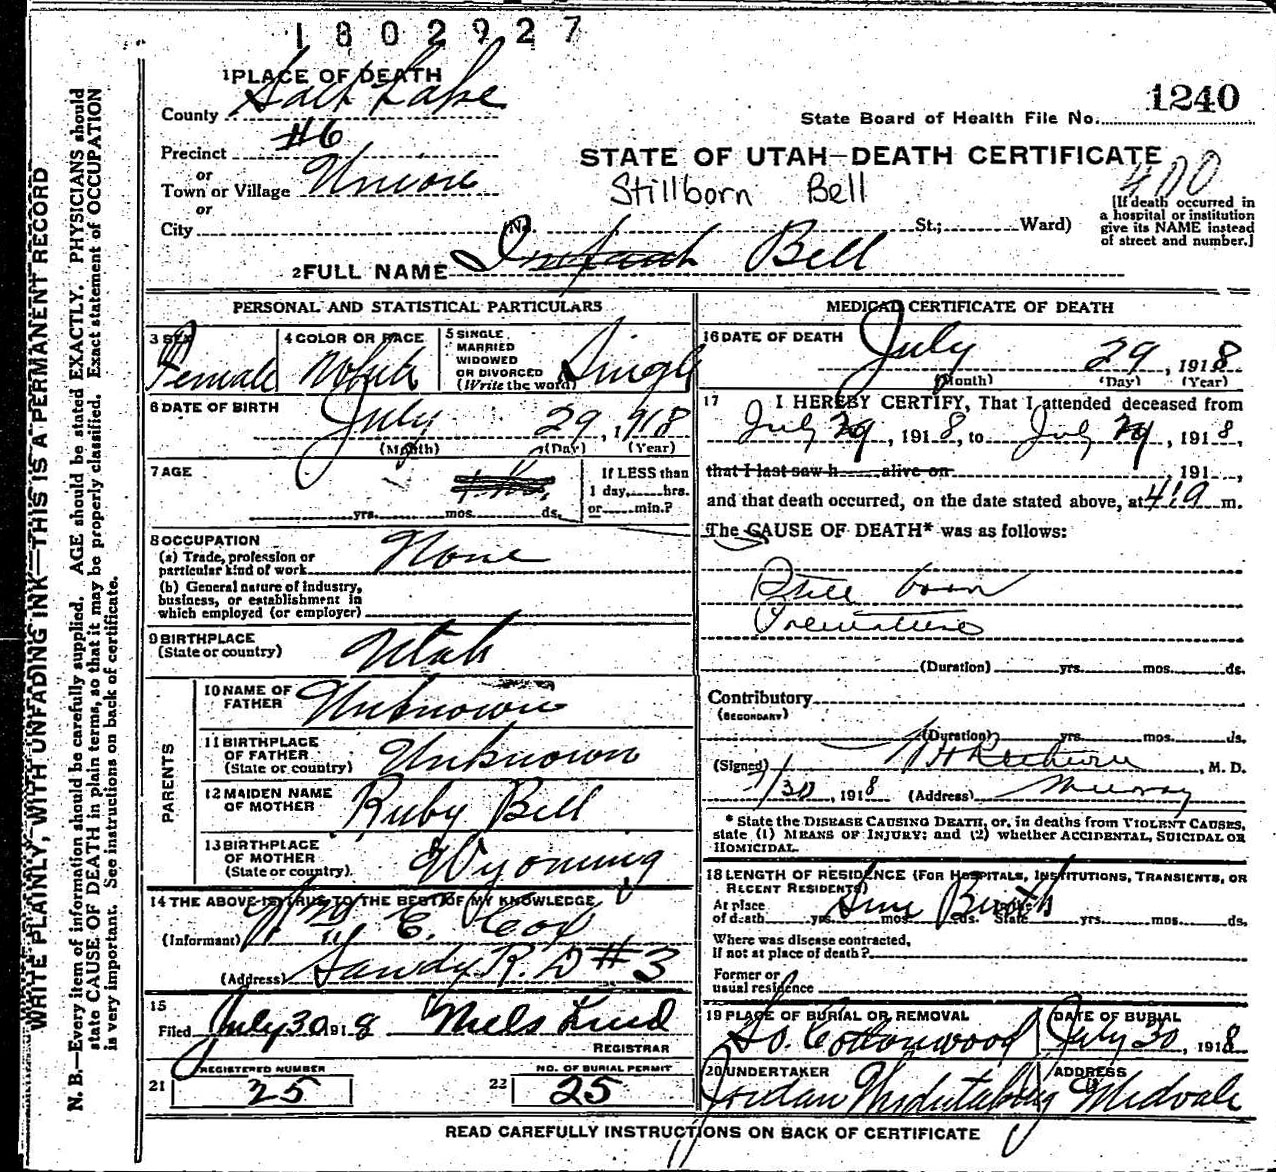 1802927
1 PLACE OF DEATH
County Salt Lake
1240
State Board of Health File No.
Precinct #6
STATE OF UTAH—DEATH CERTIFICATE
or
Town or Village Union
Stillborn Bell
400
or
City (No. St.; Ward)
[If death occurred in
a hospital or institution
give its NAME instead
of street and number.]
2 FULL NAME Infant Bell
PERSONAL AND STATISTICAL PARTICULARS
3 SEX
Female
4 COLOR OR RACE
White
5 SINGLE,
MARRIED
WIDOWED
OR DIVORCED
(Write the word)
Single
6 DATE OF BIRTH
July 29, 1918
(Month) (Day) (Year)
7 AGE
yrs. mos. ds.
If LESS than
1 day, hrs.
or min.?
8 OCCUPATION
(a) Trade, profession or
particular kind of work None
(b) General nature of industry,
business, or establishment in
which employed (or employer)
9 BIRTHPLACE
(State or country) Utah
PARENTS
10 NAME OF
FATHER Unknown
11 BIRTHPLACE
OF FATHER
(State or country) Unknown
12 MAIDEN NAME
OF MOTHER Ruby Bell
13 BIRTHPLACE
OF MOTHER
(State or country) Wyoming
14 THE ABOVE IS TRUE TO THE BEST OF MY KNOWLEDGE
(Informant) E. Cox
(Address) Sandy R. D #3
15
Filed July 30 1918 Niels Lind
REGISTRAR
21 REGISTERED NUMBER
25
22 NO. OF BURIAL PERMIT
25
MEDICAL CERTIFICATE OF DEATH
16 DATE OF DEATH
July 29, 1918
(Month) (Day) (Year)
17 I HEREBY CERTIFY, That I attended deceased from
July 29, 1918, to July 29, 1918,
that I last saw h alive on 191 ,
and that death occurred, on the date stated above, at m.
The CAUSE OF DEATH* was as follows:
Still born
Premature
(Duration) yrs. mos. ds.
Contributory
(SECONDARY)
(Duration) yrs. mos. ds.
(Signed) , M. D.
7/30, 1918 (Address) Murray
* State the DISEASE CAUSING DEATH, or, in deaths from VIOLENT CAUSES,
state (1) MEANS OF INJURY; and (2) whether ACCIDENTAL, SUICIDAL OR
HOMICIDAL.
18 LENGTH OF RESIDENCE (FOR HOSPITALS, INSTITUTIONS, TRANSIENTS, OR
RECENT RESIDENTS)
At place
of death yrs. mos. ds. State yrs. mos. ds.
Since Birth
Where was disease contracted,
if not at place of death?
Former or
usual residence
19 PLACE OF BURIAL OR REMOVAL
So. Cottonwood
DATE OF BURIAL
July 30, 1918
20 UNDERTAKER
Jordan Undertaking
ADDRESS
Midvale
READ CAREFULLY INSTRUCTIONS ON BACK OF CERTIFICATE
WRITE PLAINLY, WITH UNFADING INK—THIS IS A PERMANENT RECORD
N. B.—Every item of information should be carefully supplied. AGE should be stated EXACTLY. PHYSICIANS should
state CAUSE OF DEATH in plain terms, so that it may be properly classified. Exact statement of OCCUPATION
is very important. See instructions on back of certificate.